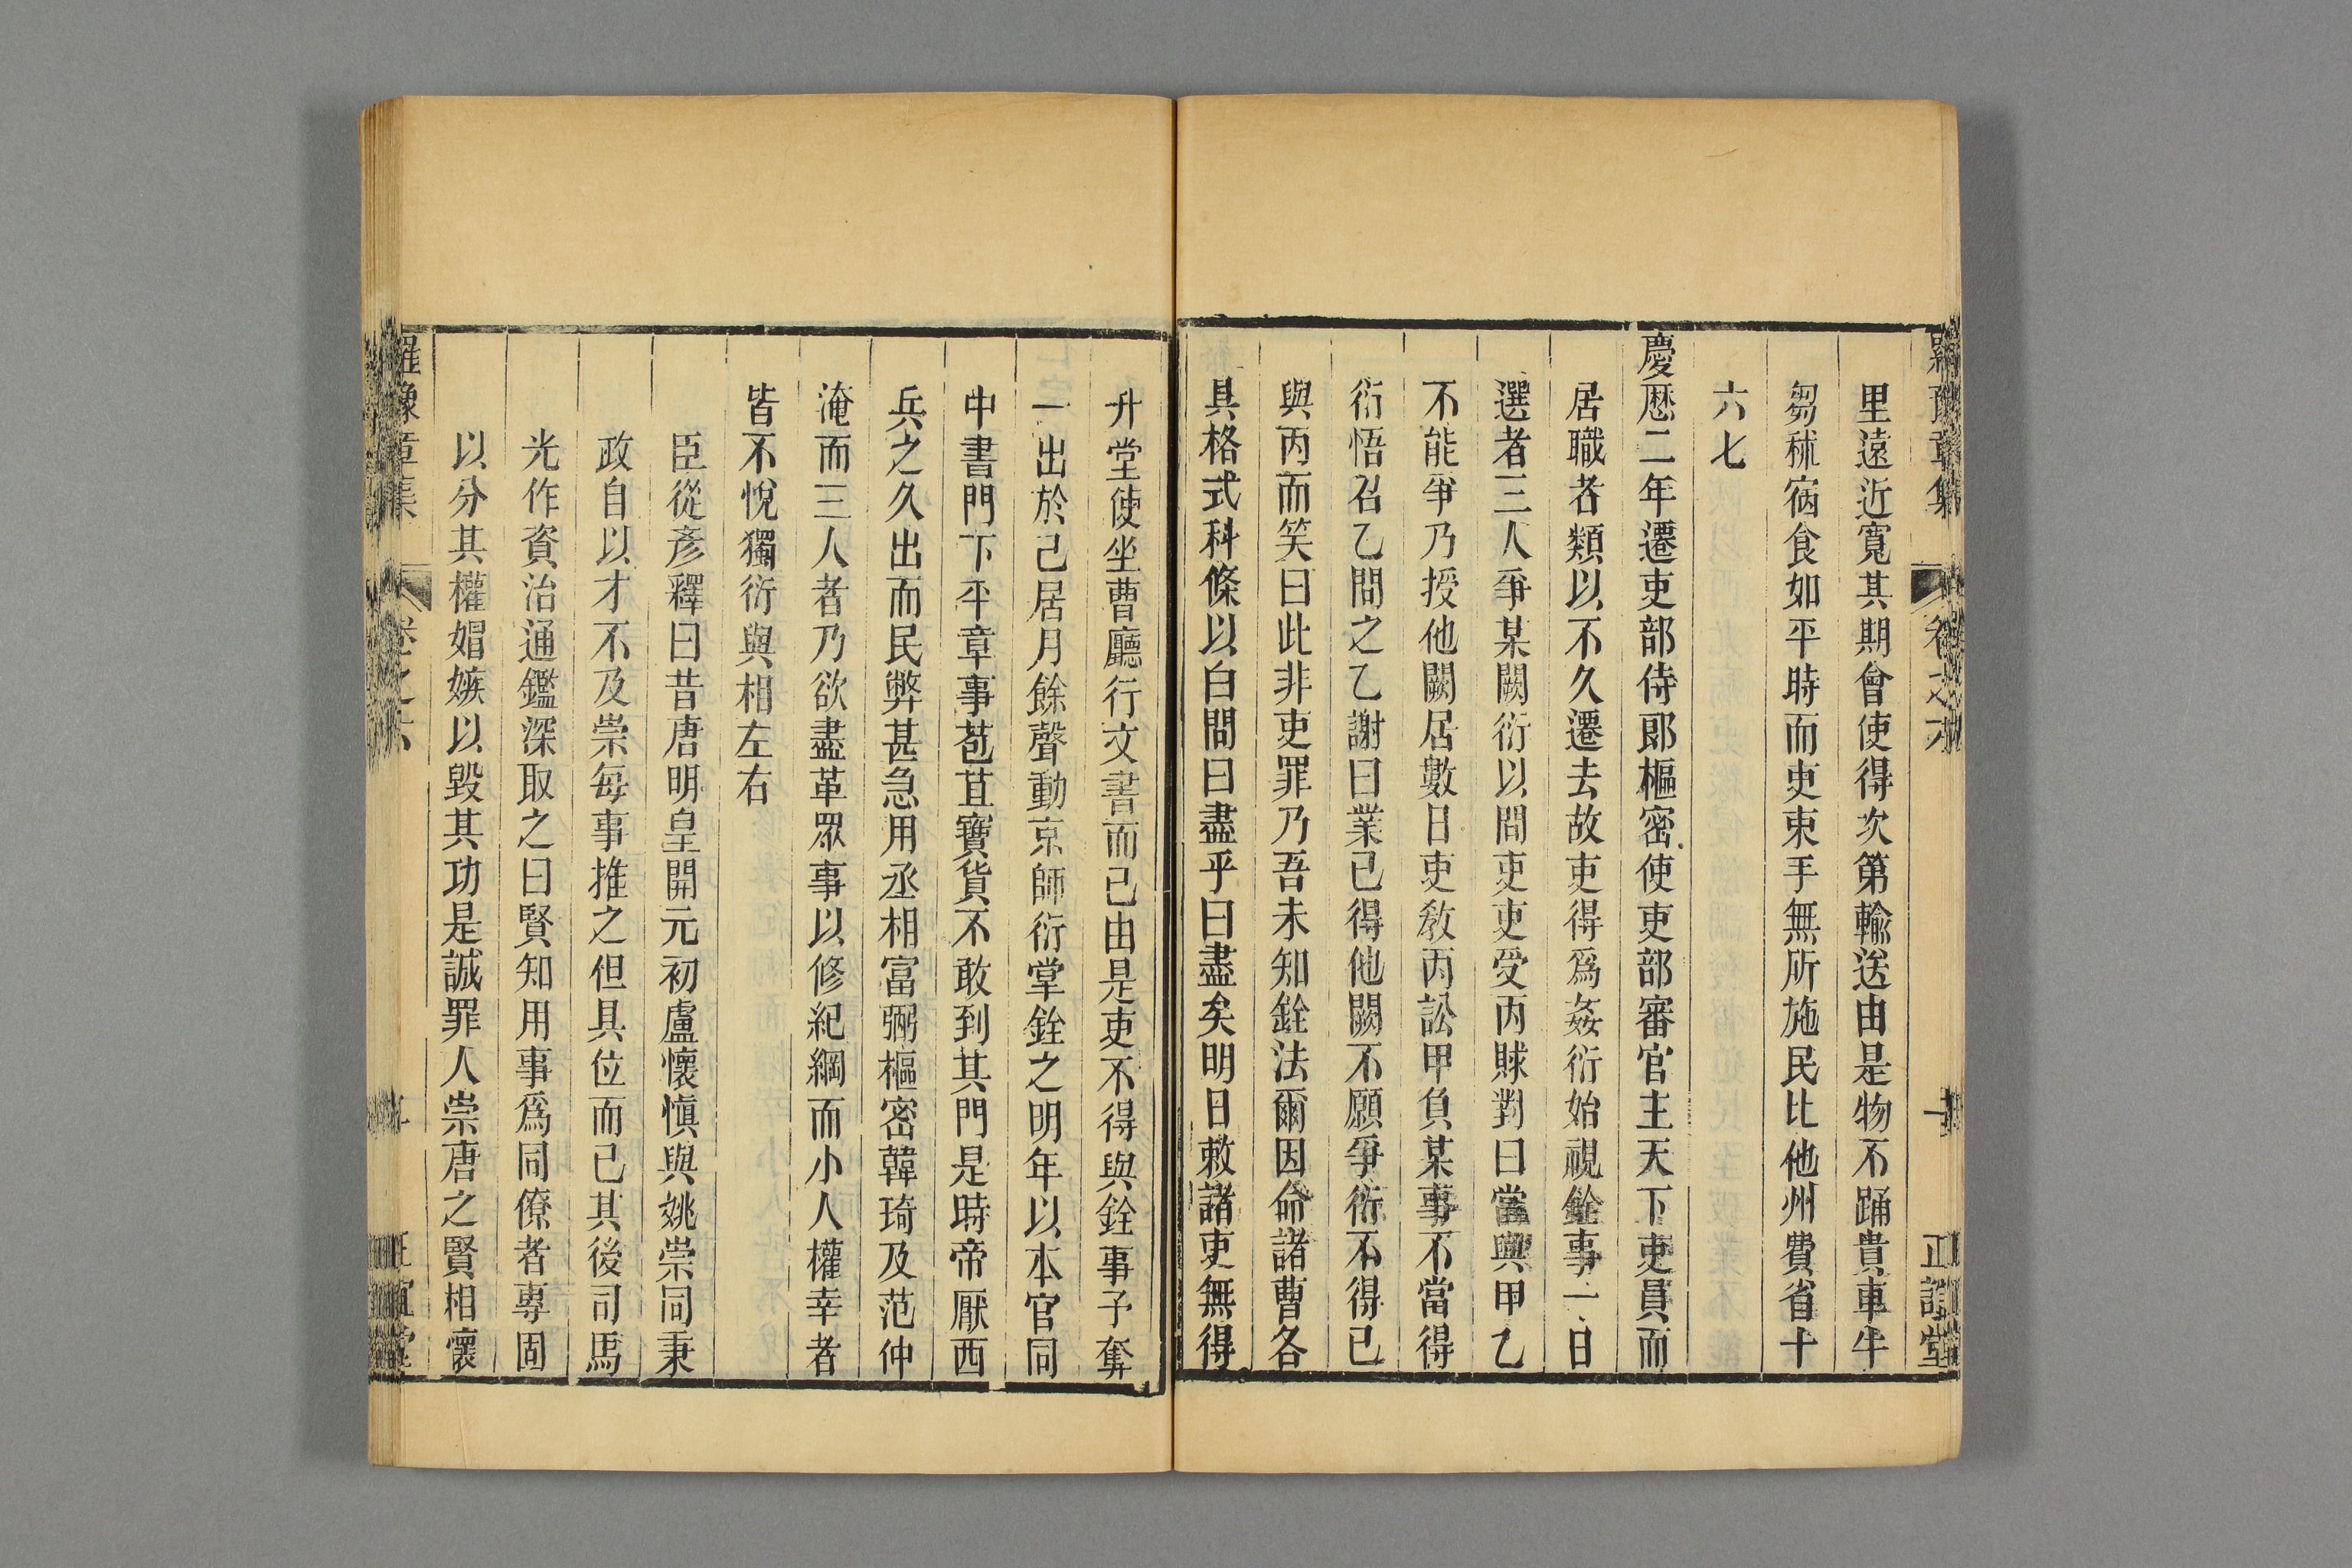 里遠近寬其期會使得次第輸送由是物不踊貴車牛
芻秣宿食如平時而吏束手無所施民比他州費省十
六七
慶厯二年遷吏部侍郎樞密使吏部審官主天下吏員而
居職者類以不久遷去故吏得爲姦衍始視銓事一日
選者三人爭某闕衍以問吏吏受丙賕對曰當與甲乙
不能爭乃授他闕居數日吏敎丙訟甲負某事不當得
衍悟召乙問之乙謝曰業已得他闕不願爭衍不得已
與丙而笑曰此非吏罪乃吾未知銓法爾因命諸曹各
具格式科條以白問曰盡乎曰盡矣明日敕諸吏無得
升堂使坐曹廳行文書而已由是吏不得與銓事予奪
一出於己居月餘聲動京師衍掌銓之明年以本官同
中書門下平章事苞苴寶貨不敢到其門是時帝厭西
兵之久出而民弊甚急用丞相富弼樞密韓琦及范仲
淹而三人者乃欲盡革眾事以修紀綱而小人權幸者
皆不悅獨衍與相左右
臣從彥釋曰昔唐明皇開元初盧懷愼與姚崇同秉
政自以才不及崇每事推之但具位而已其後司馬
光作資治通鑑深取之曰賢知用事爲同僚者專固
以分其權媢嫉以毀其功是誠罪人崇唐之賢相懷
羅豫章集
卷之六